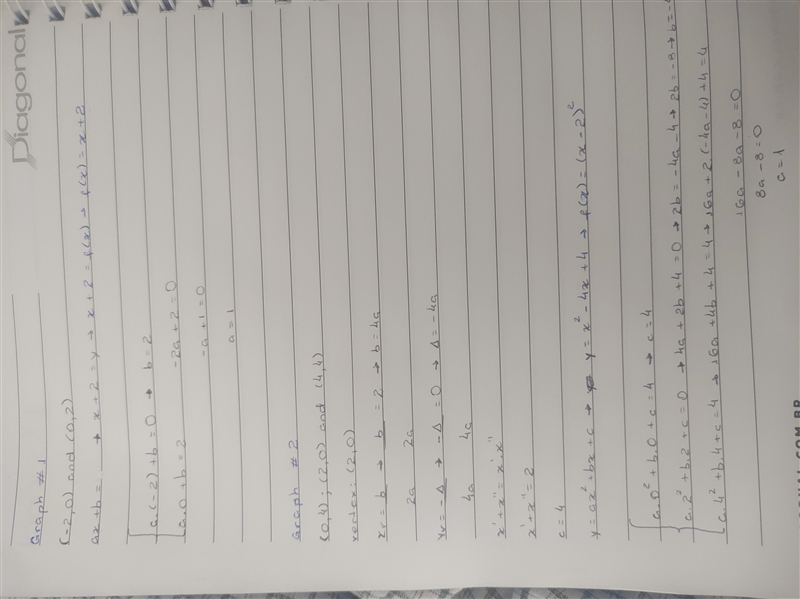 Diagonal
Graph #1
(-2,0) and (0,2)
ax+b= → x+2=y → x+2=f(x) → f(x)=x+2
a.(-2)+b=0 → b=2
a.0+b=2 -2a+2=0
-a+1=0
a=1
Graph #2
(0,4); (2,0) and (4,4)
vertex: (2,0)
xv = b/2a → b/2a = 2 → b=4a
yv = -Δ/4a → -Δ/4a = 0 → Δ=-4a
x'+x''=x'.x''
x'+x''=2
c=4
y=ax²+bx+c → y=x²-4x+4 → f(x)=(x-2)²
a.0²+b.0+c=4 → c=4
a.2²+b.2+c=0 → 4a+2b+4=0 → 2b=-4a-4 → 2b=-8 → b=-4
a.4²+b.4+c=4 → 16a+4b+4=4 → 16a+2.(-4a-4)+4=4
16a-8a-8=0
8a-8=0
a=1
.COM.BR